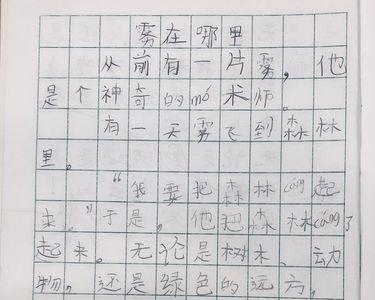 雾在哪里
从前有一片雾，他
是个神奇的mó术师。
有一天雾飞到森林
里。
“我要把森林cáng起
来。”于是，他把森林cáng了
起来。无论是树木、动
物，还是绿色的远方，